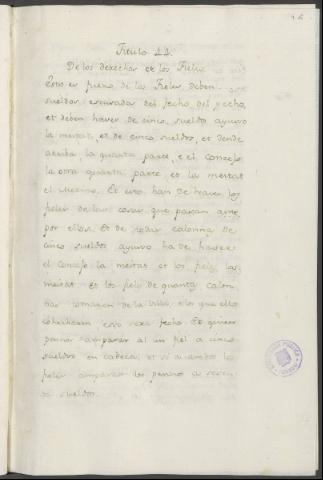 Titulo 22.
De los derechos de los Fieles
Esto es fuero de los Fieles deben
sueldos escurada del fecho, del pecho,
et deben haver de cinco sueldo ayuso
la meitat, et de cinco sueldos, et dende
arriba la quarta parte, e el Concejo
la otra quarta parte et la meitat
el mesmo. Et esto han de haver los
fieles de las cosas que pasan ante
por ellos. Et de todas calonna de
cinco sueldos ayuso ha de haver
el Concejo la meitat et los fieles la
meitat Et los fieles de quanta calon
nas tomaren de la Villa, e los que ello
cohecharen esto sera fecho. Et quisere
parar amparar al un fiel a cinco
sueldos en cabeza, et si a ambos los
fieles amparar los pennos a
sueldos.